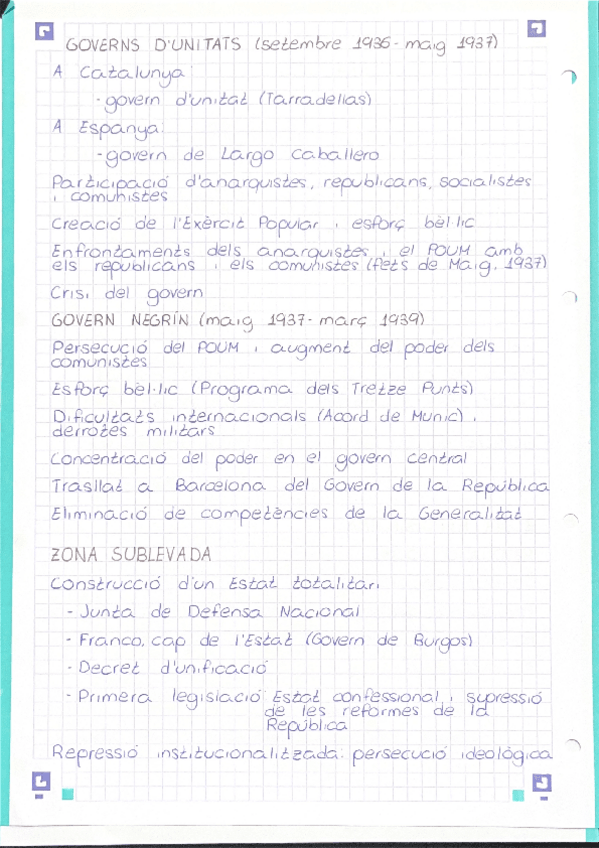 GOVERNS D'UNITATS (setembre 1936- maig 1937)
A Catalunya:
- govern d'unitat (Tarradellas)
A Espanya:
- govern de Largo Caballero
Participació d'anarquistes, republicans, socialistes
i comunistes
Creació de l'Exèrcit Popular i esforç bèl·lic
Enfrontaments dels anarquistes i el POUM amb
els republicans i els comunistes (fets de Maig, 1937)
Crisi del govern
GOVERN NEGRÍN (maig 1937- març 1939)
Persecució del POUM i augment del poder dels
comunistes
Esforç bèl·lic (Programa dels Tretze Punts)
Dificultats internacionals (Acord de Munic) i
derrotes militars
Concentració del poder en el govern central
Trasllat a Barcelona del Govern de la República
Eliminació de competències de la Generalitat
ZONA SUBLEVADA
Construcció d'un Estat totalitari
- Junta de Defensa Nacional
- Franco, cap de l'Estat (Govern de Burgos)
- Decret d'unificació
- Primera legislació: Estat confessional i supressió
de les reformes de la
República
Repressió institucionalitzada: persecució ideològica